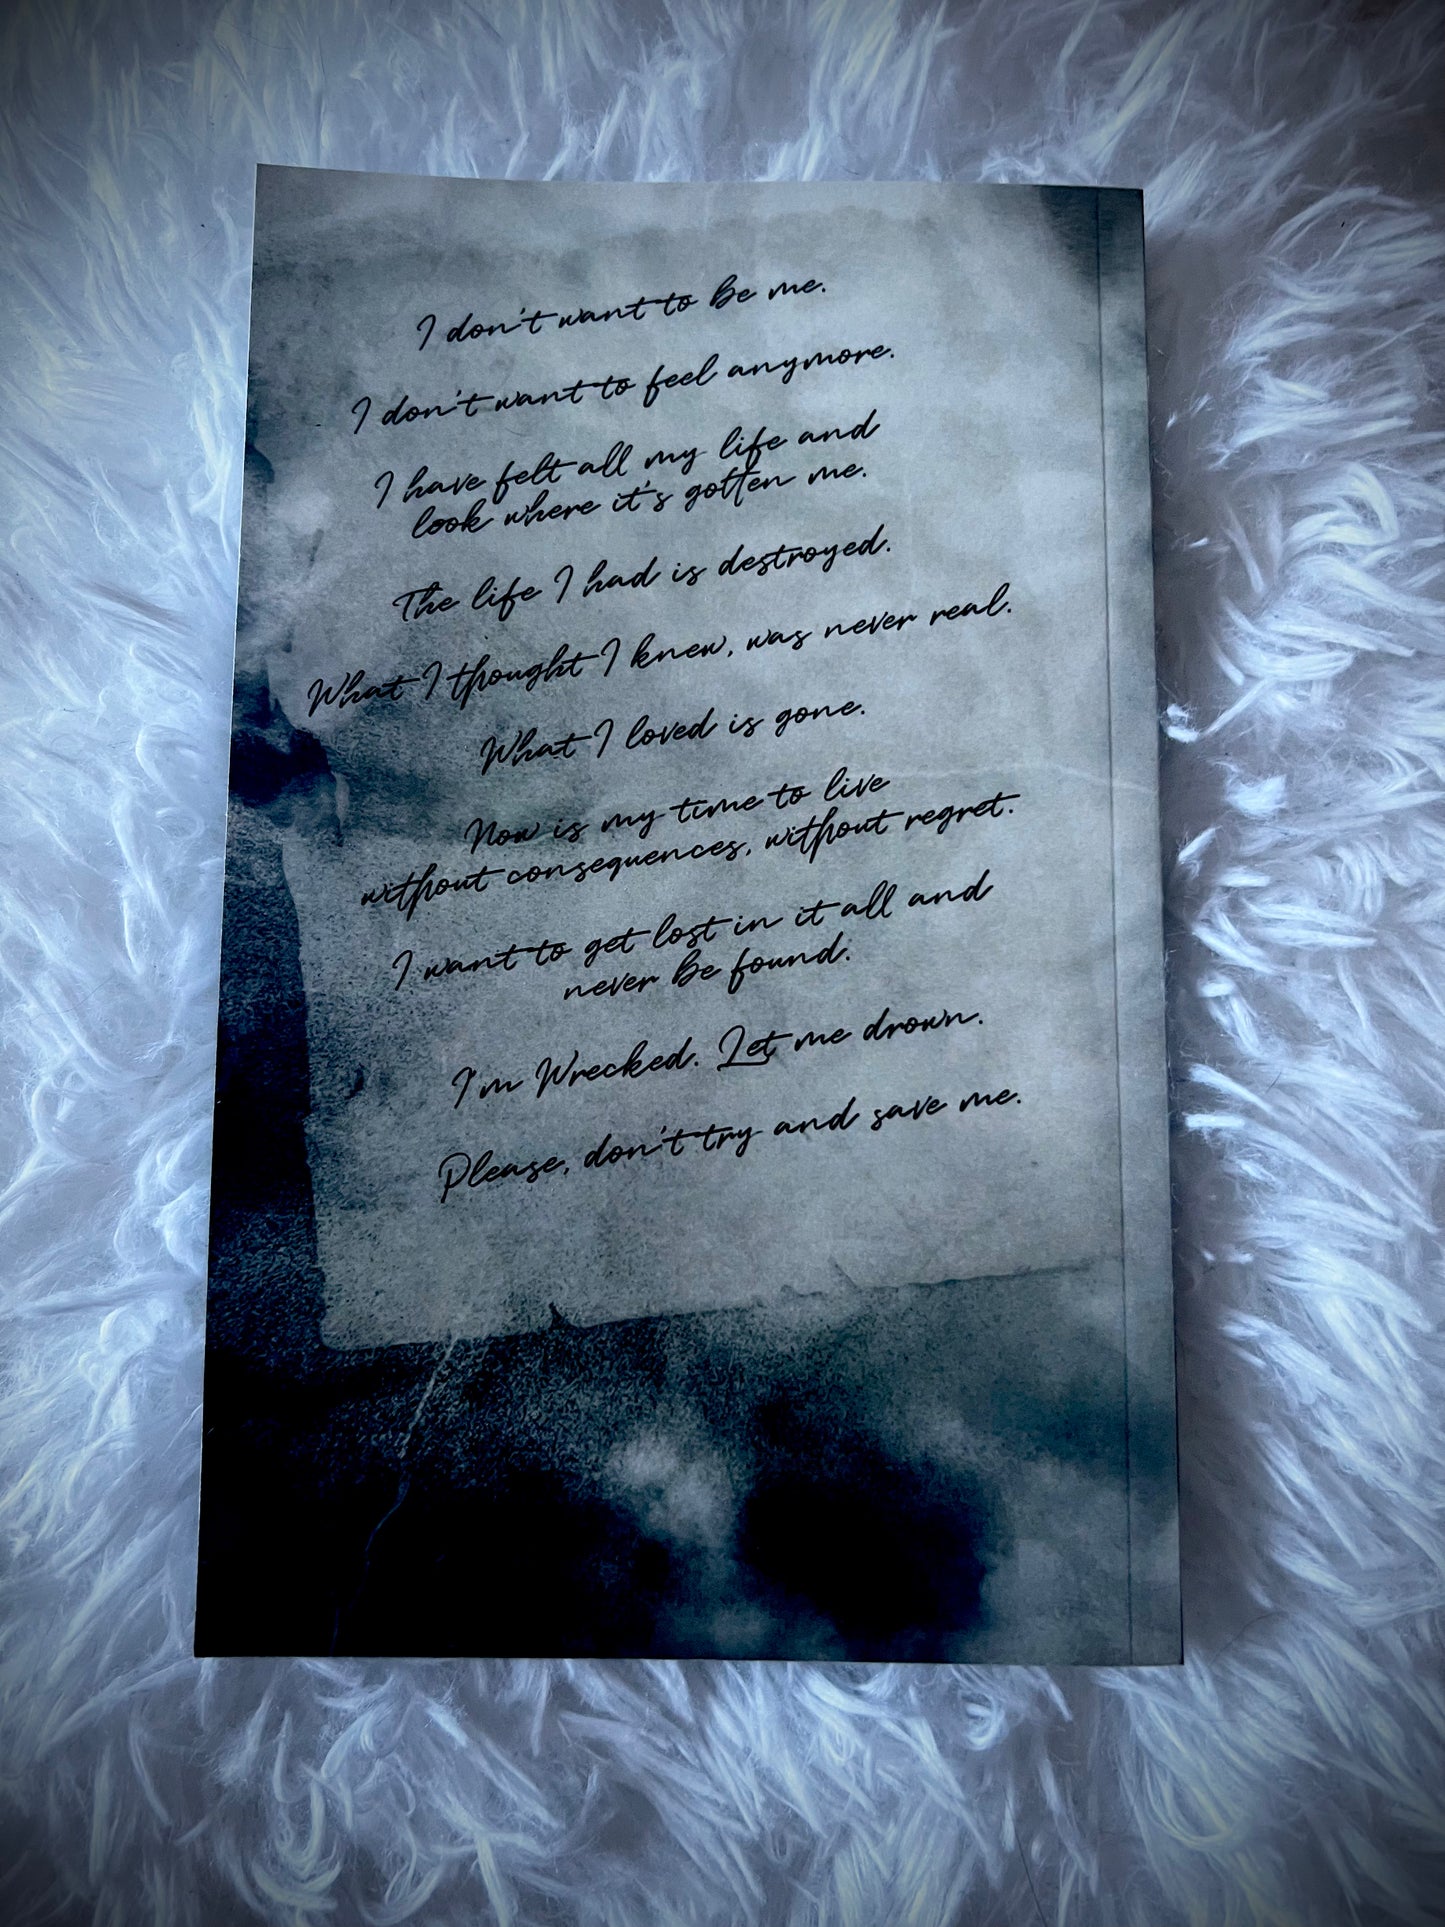 I don't want to be me.
I don't want to feel anymore.
I have felt all my life and
look where it's gotten me.
The life I had is destroyed.
What I thought I knew, was never real.
What I loved is gone.
Now is my time to live
without consequences, without regret.
I want to get lost in it all and
never be found.
I'm Wrecked. Let me drown.
Please, don't try and save me.